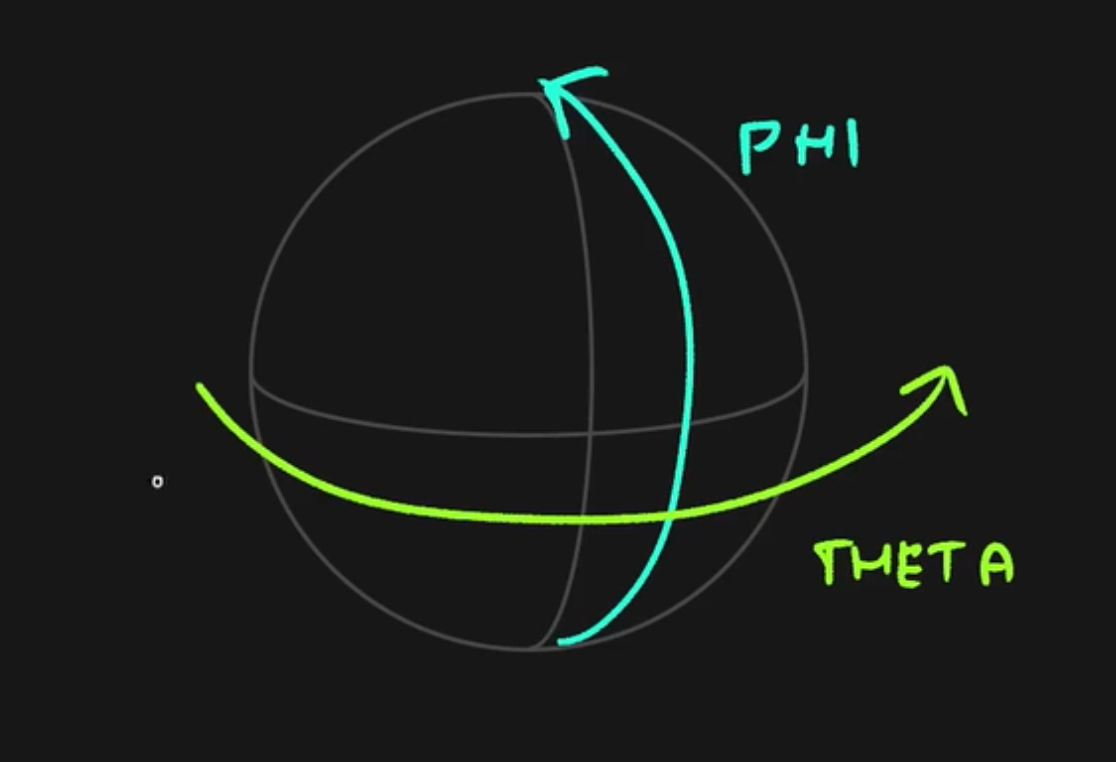 PHI
THETA